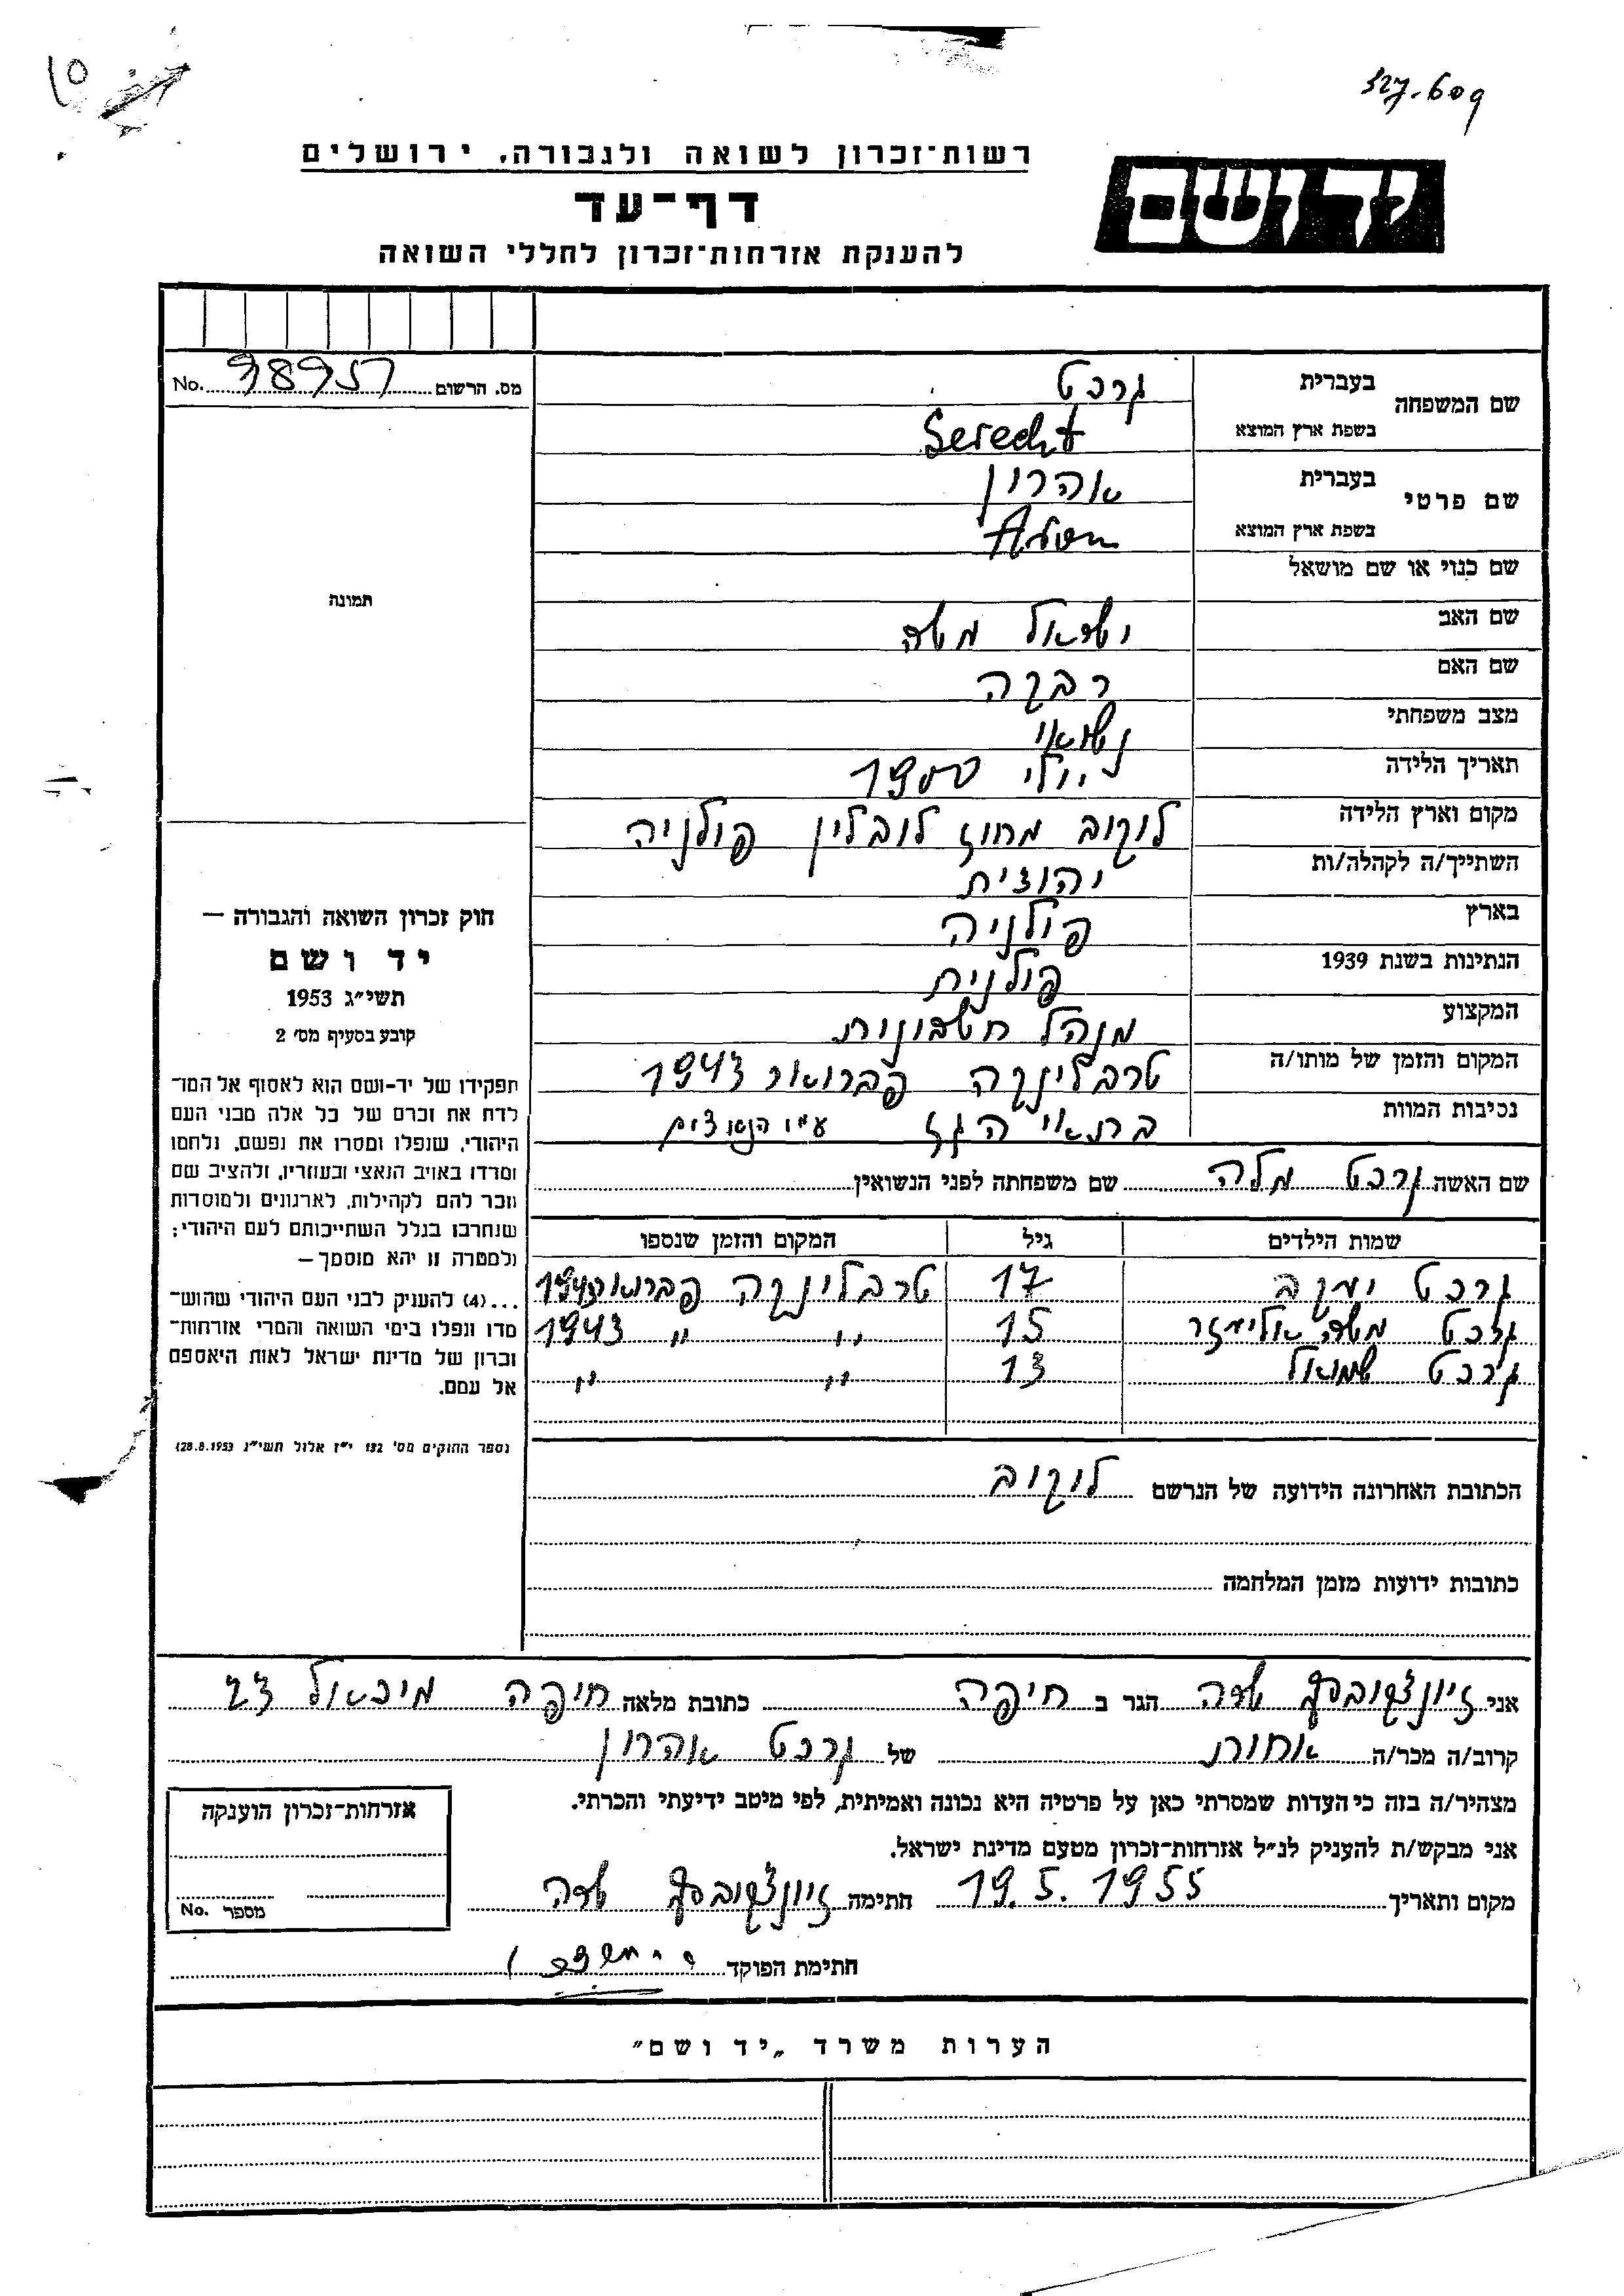 327.609
10
רשות־זכרון לשואה ולגבורה, ירושלים
דף־עד
להענקת אזרחות־זכרון לחללי השואה
יד ושם
מס. הרשום 98957 No.
שם המשפחה
בעברית גרכט
בשפת ארץ המוצא Gerecht
שם פרטי
בעברית אהרון
בשפת ארץ המוצא Aron
שם כנוי או שם מושאל
שם האב ישראל משה
שם האם רבקה
מצב משפחתי נשואי
תאריך הלידה יולי 1900
מקום וארץ הלידה לוקוב מחוז לובלין פולניה
השתייך/ה לקהלה/ות יהודית
בארץ פולניה
הנתינות בשנת 1939 פולנית
המקצוע מנהל חשבונות
המקום והזמן של מותו/ה טרבלינקה פברואר 1943
נסיבות המוות בתאי הגז ע"י הנאצים
תמונה
חוק זכרון השואה והגבורה —
יד ושם
תשי״ג 1953
קובע בסעיף מס׳ 2
תפקידו של יד-ושם הוא לאסוף אל המו־
לדת את זכרם של כל אלה מבני העם
היהודי, שנפלו ומסרו את נפשם, נלחמו
ומרדו באויב הנאצי ובעוזריו, ולהציב שם
וזכר להם לקהילות, לארגונים ולמוסדות
שנחרבו בגלל השתייכותם לעם היהודי;
ולמטרה זו יהא מוסמך —
...(4) להעניק לבני העם היהודי שהוש־
מדו ונפלו בימי השואה והמרי אזרחות־
זכרון של מדינת ישראל לאות היאספם
אל עמם.
(ספר החוקים מס׳ 132 י״ז אלול תשי״ג 28.8.1953)
שם האשה גרכט מלה שם משפחתה לפני הנשואין
שמות הילדים גיל המקום והזמן שנספו
גרכט יעקב 17 טרבלינקה פברואר 1943
גרכט משה אליעזר 15 " " 1943
גרכט שמואל 13 " "
הכתובת האחרונה הידועה של הנרשם לוקוב
כתובות ידועות מזמן המלחמה
אני שרה הגר ב חיפה כתובת מלאה חיפה מיכאל 23
קרוב/ה מכר/ה אחות של גרכט אהרון
מצהיר/ה בזה כי העדות שמסרתי כאן על פרטיה היא נכונה ואמיתית, לפי מיטב ידיעתי והכרתי.
אני מבקש/ת להעניק לנ״ל אזרחות־זכרון מטעם מדינת ישראל.
מקום ותאריך 19.5.1955 חתימה שרה
חתימת הפוקד
אזרחות־זכרון הוענקה
מספר No.
הערות משרד „יד ושם״